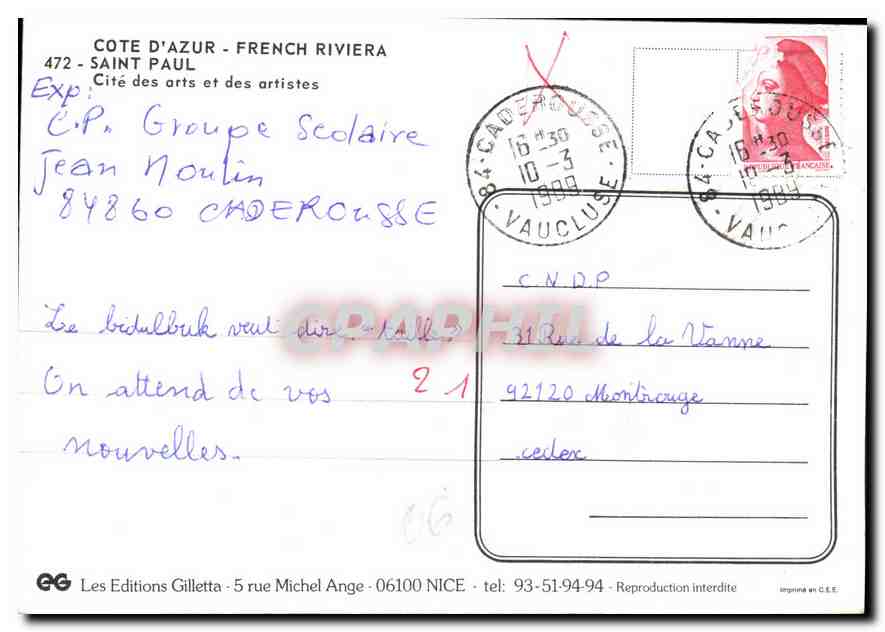 COTE D'AZUR - FRENCH RIVIERA
472 - SAINT PAUL
Cité des arts et des artistes
Exp:
C.P. Groupe Scolaire
Jean Moulin
84860 CADEROUSSE
84 - CADEROUSSE - VAUCLUSE
16 H 30
10 - 3
1989
84 - CADEROUSSE
16 H 30
10 - 3
1989
VAUC
REPUBLIQUE FRANÇAISE
C.N.D.P
Le bidulbuk veut dire "taille"
31 Rue de la Vanne
On attend de vos
21
92120 Montrouge
nouvelles.
cedex
CPAPHIL
Les Editions Gilletta - 5 rue Michel Ange - 06100 NICE - tel: 93-51-94-94 - Reproduction interdite
Imprimé en C.E.E.